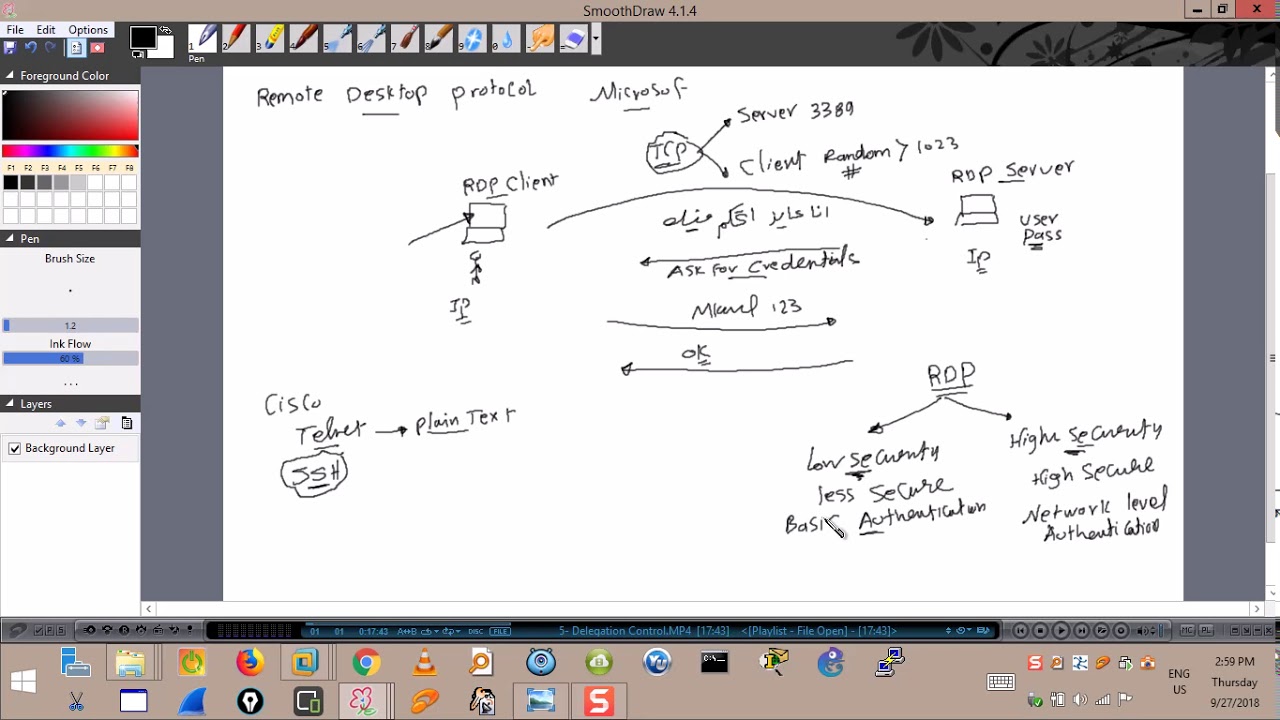 SmoothDraw 4.1.4
File Edit Options
Foreground Color
F1 F2 F3 F4 F5 F6 F7 F8
Pen
Brush Size
1.2
Ink Flow
60 %
...
Layers
Background Layer
1 2 3 4 5 6 7 8 9 0
Pen
Remote Desktop protocol Microsoft
TCP
Server 3389
Client Random > 1023
#
RDP Client
RDP Server
انا عايز اتكلم معاك
User
Pass
IP
Ask For Credentials
IP
123
OK
RDP
Cisco
Telnet → Plain Text
SSH
Low Security
High Security
less Secure
High Secure
Basic Authentication
Network level
Authentication
01 01 0:17:43 A↔B DISC FILE 5- Delegation Control.MP4 [17:43] <[Playlist - File Open] - [17:43]>
ENG
US
2:59 PM
Thursday
9/27/2018